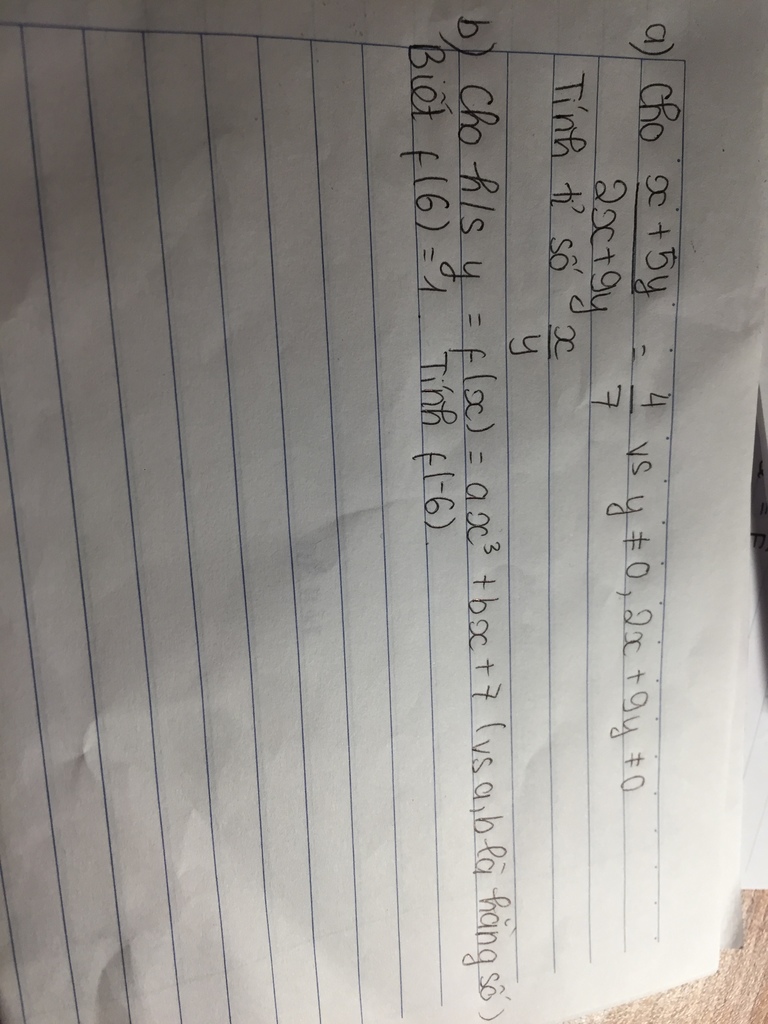 a) Cho x + 5y / 2x + 9y = 4 / 7 vs y ≠ 0, 2x + 9y ≠ 0
Tính tỉ số x / y
b) Cho h/s y = f(x) = ax³ + bx + 7 (vs a, b là hằng số)
Biết f(6) = 1. Tính f(-6).